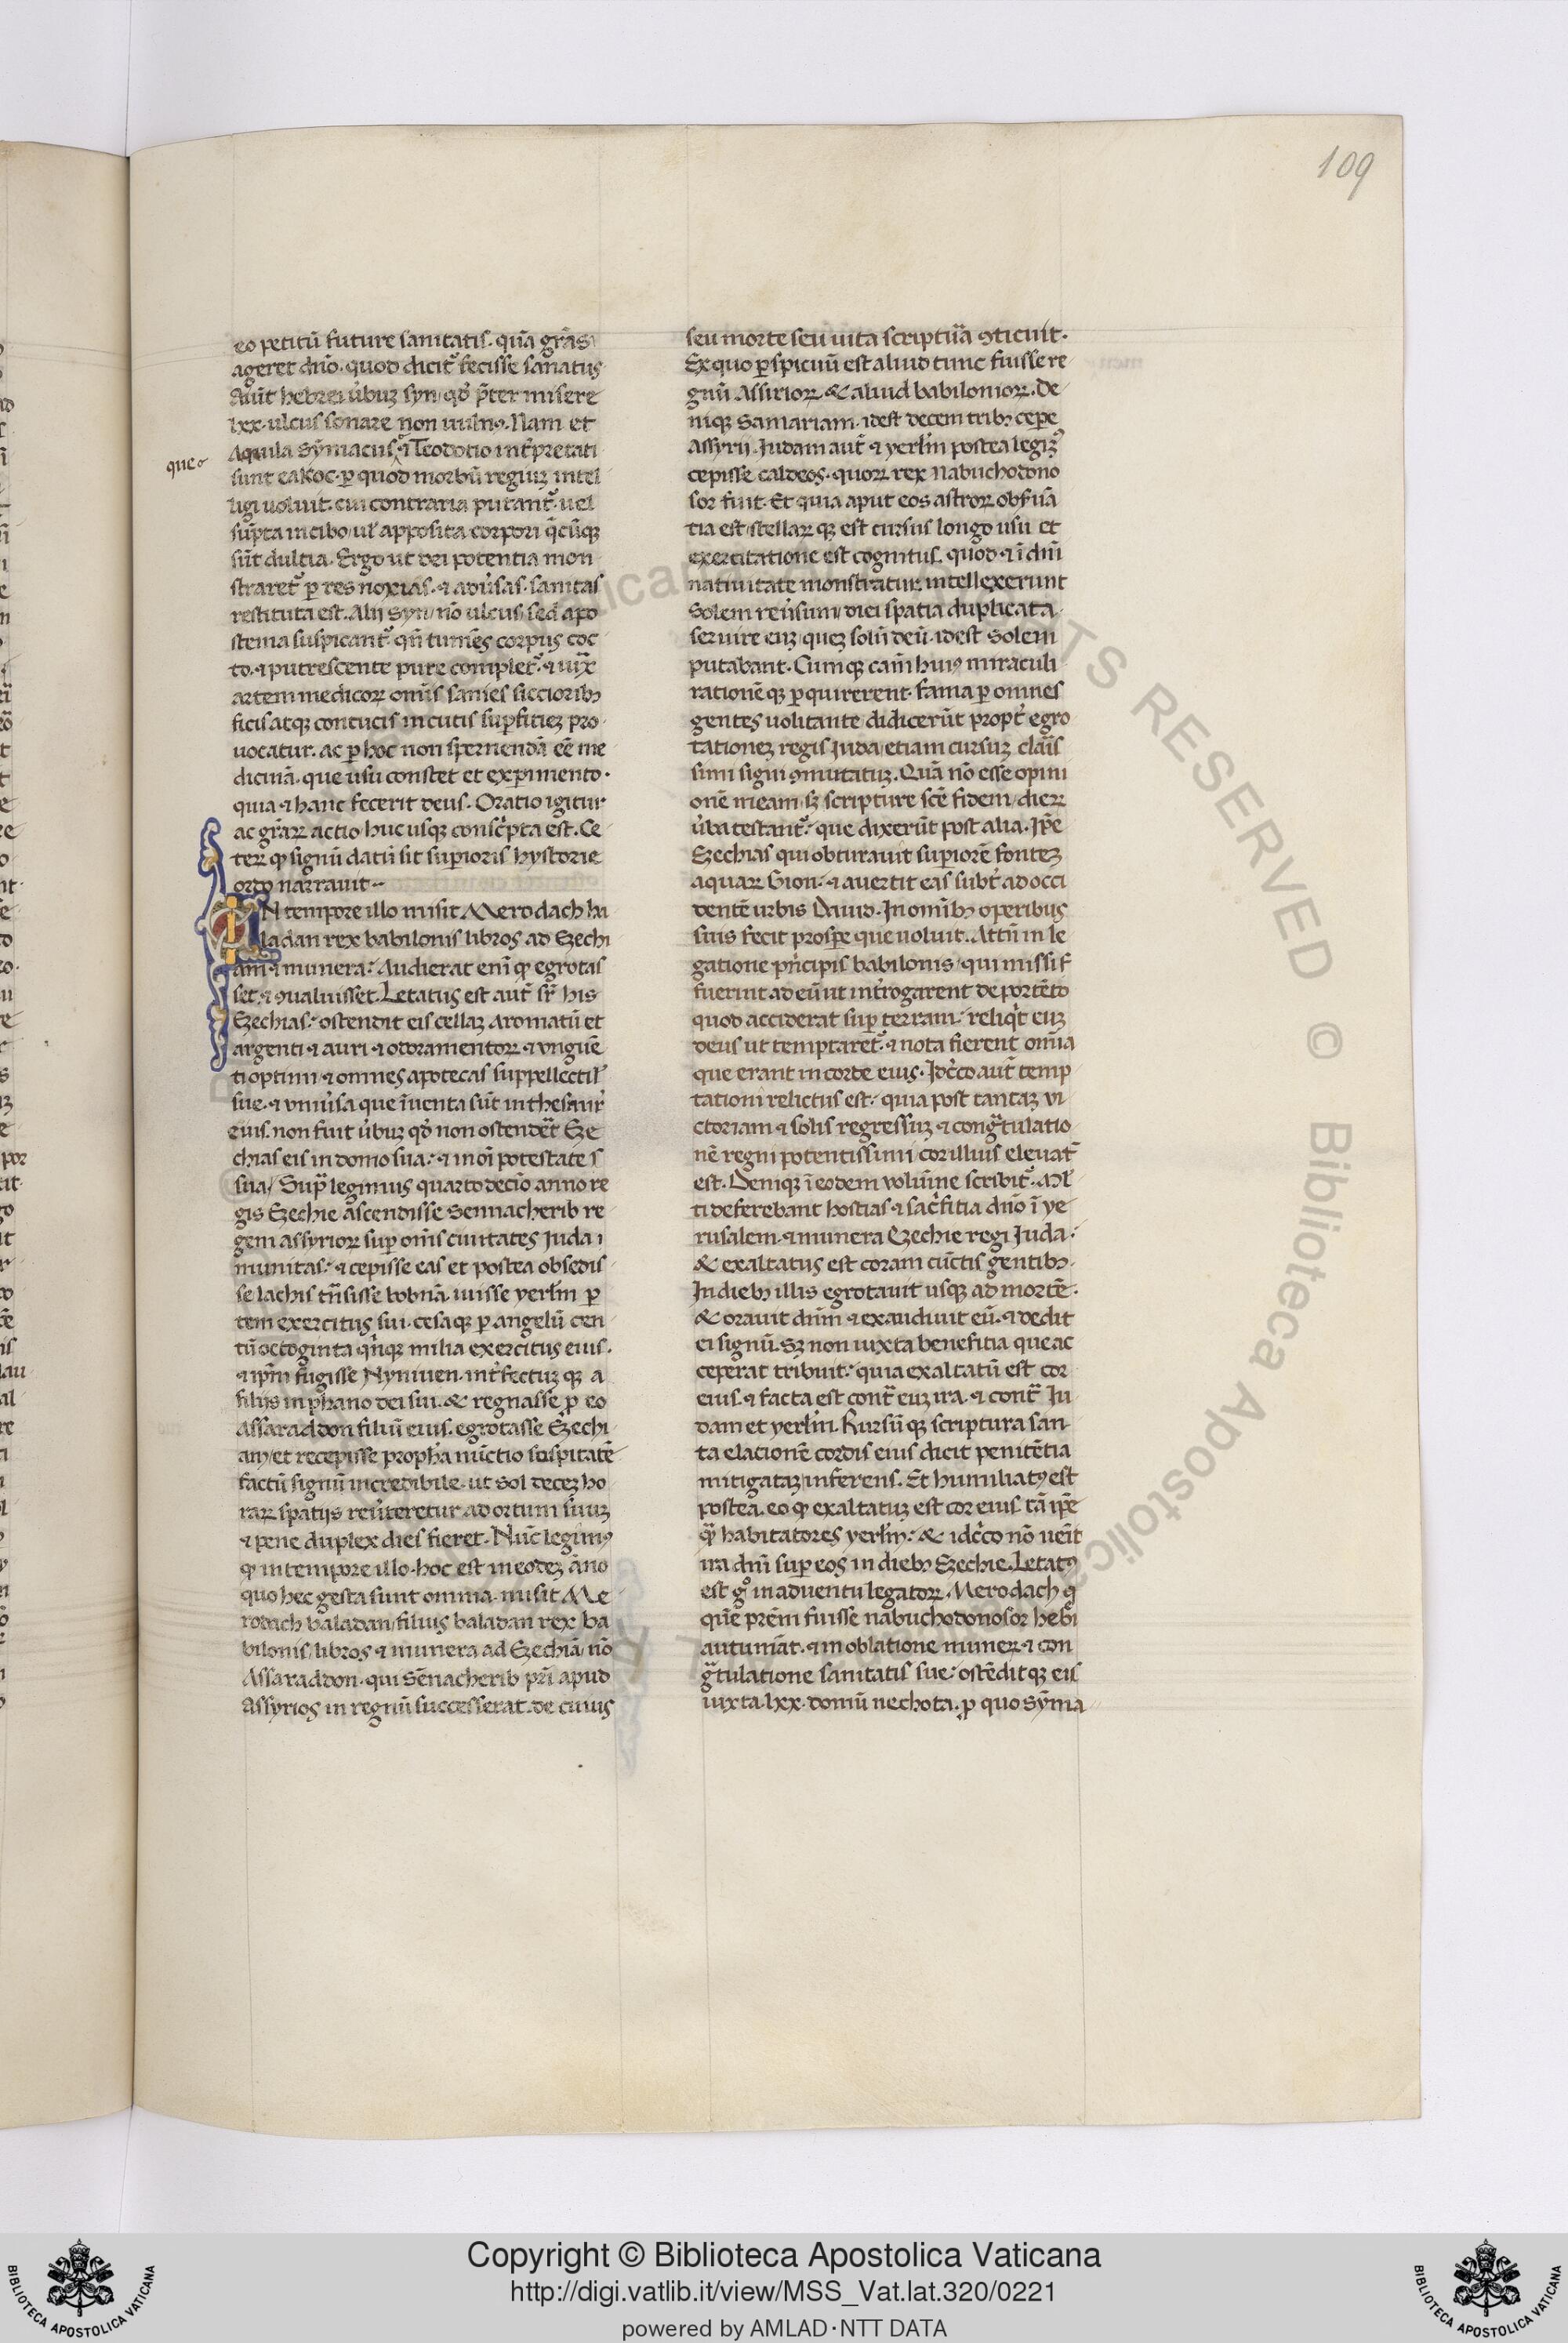 109
eo petitũ future sanitatis. quã grãs
ageret dño. quod dicit᷒ fecisse sanatus
Aiũt hebrei ũbuʒ syn. qđ p̃ter misere
lxx. ulcus sonare non uuln᷒. Nam et
Aquila Sỹmacus, ⁊ Teodotio int̃pretati
que
sunt eλκος. ꝑ quod morbũ regiuʒ intel
ligi uoluit. cui contraria putant᷒. uel
sũpta in cibo, uł apposita corpori q̃cũqʒ
sũt dultia. Ergo ut dei potentia mon
straret᷒ ꝑ res noxias. ⁊ adũsas. sanitas
restituta est. Alij syn, nõ ulcus, sed apo
stema suspicant᷒. qñ tumẽs corpus coc
to. ⁊ putrescente pure complet᷒. ⁊ iux̃
artem medicoꝝ omĩs sanies siccioribʒ
ficis atqʒ contucis in cutis suꝑfitieʒ pro
uocatur. ac ꝑ hoc non spernendã eẽ me
dicinã. que usu constet et exꝑimento.
quia ⁊ hanc fecerit deus. Oratio igitur
ac grãꝝ actio huc usqʒ consc̃pta est. Ce
teꝝ ꝙ signũ datũ sit suꝑioris hystorie
ordo narrauit
IN tempore illo misit Merodach ba
ladan rex babilonis libros ad Ezechi
am ⁊ munera. Audierat enĩ ꝙ egrotas
set. ⁊ ꝯualuisset. Letatus est aut̃ sr̃ his
Ezechias. ostendit eis cellaʒ aromatũ et
argenti ⁊ auri ⁊ odoramentoꝝ ⁊ unguẽ
ti optimi ⁊ omnes apotecas suppellectił
sue. ⁊ uniũsa que ĩuenta sũt in thesaur̃
eius. non fuit ũbuʒ qđ non ostender̃t Eze
chias eis in domo sua. ⁊ in oĩ potestate
sua. Supr̃ legimus quarto decĩo anno re
gis Ezechie ãscendisse Sennacherib re
gem Assyrioꝝ suꝑ omĩs ciuitates Juda
munitas. ⁊ cepisse eas et postea obsedis
se lachis tr̃nsisse lobnã. iuisse yerłm ꝑ
tem exercitus sui. cesaqʒ ꝑ angelũ cen
tũ octoginta qñqʒ milia exercitus eius.
⁊ ip̃m fugisse Nyniuen. int̃fectuʒ qʒ a
filijs in phano dei sui. & regnasse ꝓ eo
Assaraddon filiũ eius. egrotasse Ezechi
am, et recepisse proph̃a nũctio sospitatẽ
factũ signũ incredibile. ut sol deceʒ ho
raꝝ spatijs reũteretur. ad ortum suuʒ
⁊ pene duplex dies fieret. Nũc legim᷒
ꝙ in tempore illo. hoc est in eodeʒ ãno
quo hec gesta sunt omnia. misit Me
rodach baladan, filius baladan rex ba
bilonis, libros ⁊ munera ad Ezechiã, nõ
Assaraddon. qui Sẽnacherib pr̃i apud
Assyrios in regnũ successerat. de cuius
seu morte seu uita scriptur̃a ꝯticuit.
Ex quo ꝑspicuũ est aliud tunc fuisse re
gnũ Assirioꝝ. & aliud babilonioꝝ. De
niqʒ Samariam. idest decem tribʒ cepe
Assyrij. Judam aut̃ ⁊ yerłm postea legim᷒
cepisse caldeos. quoꝝ rex Nabuchodono
sor fuit. Et quia aput eos astroꝝ obsũã
tia est, stellaꝝ qʒ est cursus longo usu et
exercitatione est cognitus. quod ⁊ ĩ dñi
natiuitate monstratur. intellexerunt
Solem reũsum, diei spatia duplicata.
seruire euʒ, queʒ solũ deũ. idest Solem
putabant. Cumqʒ cam̃ hui᷒ miraculi
rationẽqʒ ꝑquirerent. fama ꝑ omnes
gentes uolitante didicerũt propt̃ egro
tationeʒ regis Juda, etiam cursuʒ clar̃is
simi signi ꝯmutatuʒ. Quã nõ esse opini
onẽ meam, sʒ scripture scẽ fidem, dieꝝ
ũba testant᷒. que dixerũt post alia. Ip̃e
Ezechias qui obturauit suꝑiorẽ fonteʒ
aquaꝝ Gion. ⁊ auertit eas subt̃ ad occi
dentẽ urbis Dauid. In omĩbʒ operibus
suis fecit prosꝑe que uoluit. Attñ in le
gatione pñcipis babilonis, qui missi
fuerint ad eũ ut int̃rogarent de portẽto
quod acciderat suꝑ terram. reliqt̃ euʒ
deus ut temptaret᷒. ⁊ nota fierent omĩa
que erant in corde eius. Idc̃co aut̃ temp
tationi relictus est. quia post tantaʒ ui
ctoriam ⁊ solis regressuʒ ⁊ congr̃tulatio
nẽ regni potentissimi cor illius eleuat̃
est. Deniqʒ ĩ eodem uolũine scribit᷒. Mł
ti deferebant hostias ⁊ sac̃fitia dño ĩ ye
rusalem. ⁊ munera Ezechie regi Juda.
& exaltatus est coram cũctis gentibʒ.
In diebʒ illis egrotauit usqʒ ad mortẽ.
& orauit dñm ⁊ exaudiuit eũ. ⁊ dedit
ei signũ. Sʒ non iuxta benefitia que ac
ceperat tribuit. quia exaltatũ est cor
eius. ⁊ facta est contr̃ euʒ ira. ⁊ contr̃ Ju
dam et yerłm. Rursũqʒ scriptura san
ta elationẽ cordis eius dicit penitẽtia
mitigataʒ inferens. Et humiliat᷒ est
postea. eo ꝙ exaltatuʒ est cor eius tã ip̃e
qr̃ habitatores yerłm. & idc̃co nõ uẽit
ira dñi suꝑ eos in diebʒ Ezechie. Letat᷒
est gͦ in aduentu legatoꝝ Merodach
quẽ prẽm fuisse nabuchodonosor hebr̃i
autumãt. ⁊ in oblatione muneꝝ ⁊ con
gr̃tulatione sanitatis sue. ostẽditqʒ eis
iuxta. lxx. domũ nechota. ꝓ quo Sỹma
Copyright © Biblioteca Apostolica Vaticana
http://digi.vatlib.it/view/MSS_Vat.lat.320/0221
powered by AMLAD·NTT DATA
BIBLIOTECA APOSTOLICA VATICANA
BIBLIOTECA APOSTOLICA VATICANA